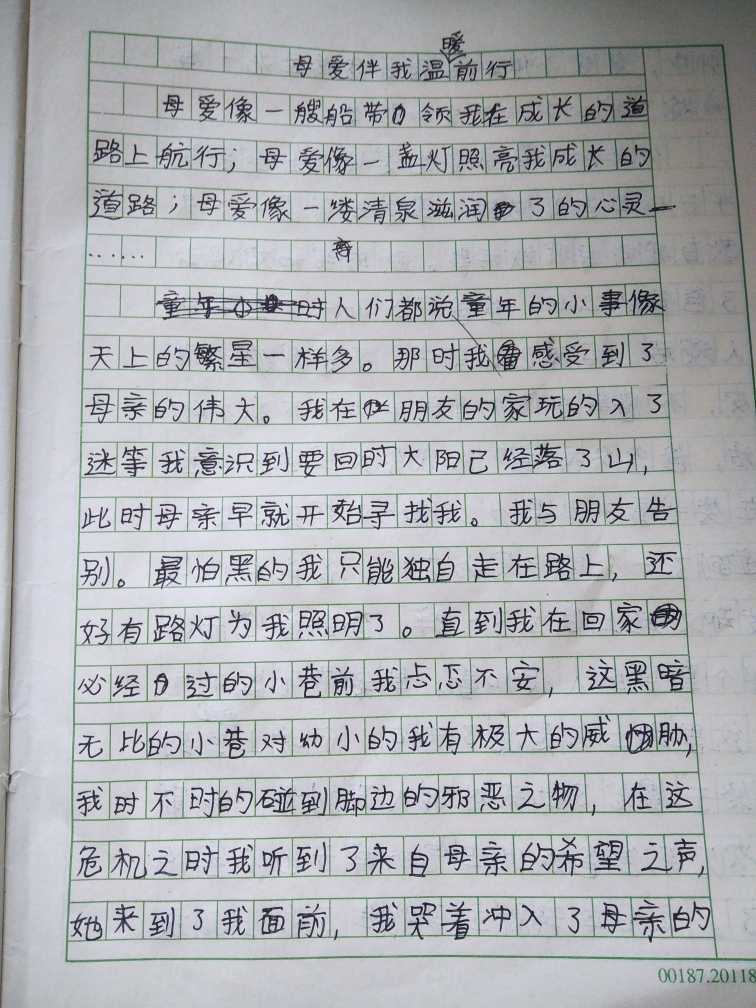 母爱伴我温暖前行
母爱像一艘船带领我在成长的道
路上航行；母爱像一盏灯照亮我成长的
道路；母爱像一缕清泉滋润了的心灵
……
时人们都说童年的小事像
天上的繁星一样多。那时我感受到了
母亲的伟大。我在朋友的家玩的入了
迷等我意识到要回时大阳已经落了山，
此时母亲早就开始寻找我。我与朋友告
别。最怕黑的我只能独自走在路上，还
好有路灯为我照明了。直到我在回家
必经过的小巷前我忐忑不安，这黑暗
无比的小巷对幼小的我有极大的威胁，
我时不时的碰到脚边的邪恶之物，在这
危机之时我听到了来自母亲的希望之声，
她来到了我面前，我哭着冲入了母亲的
00187.20118